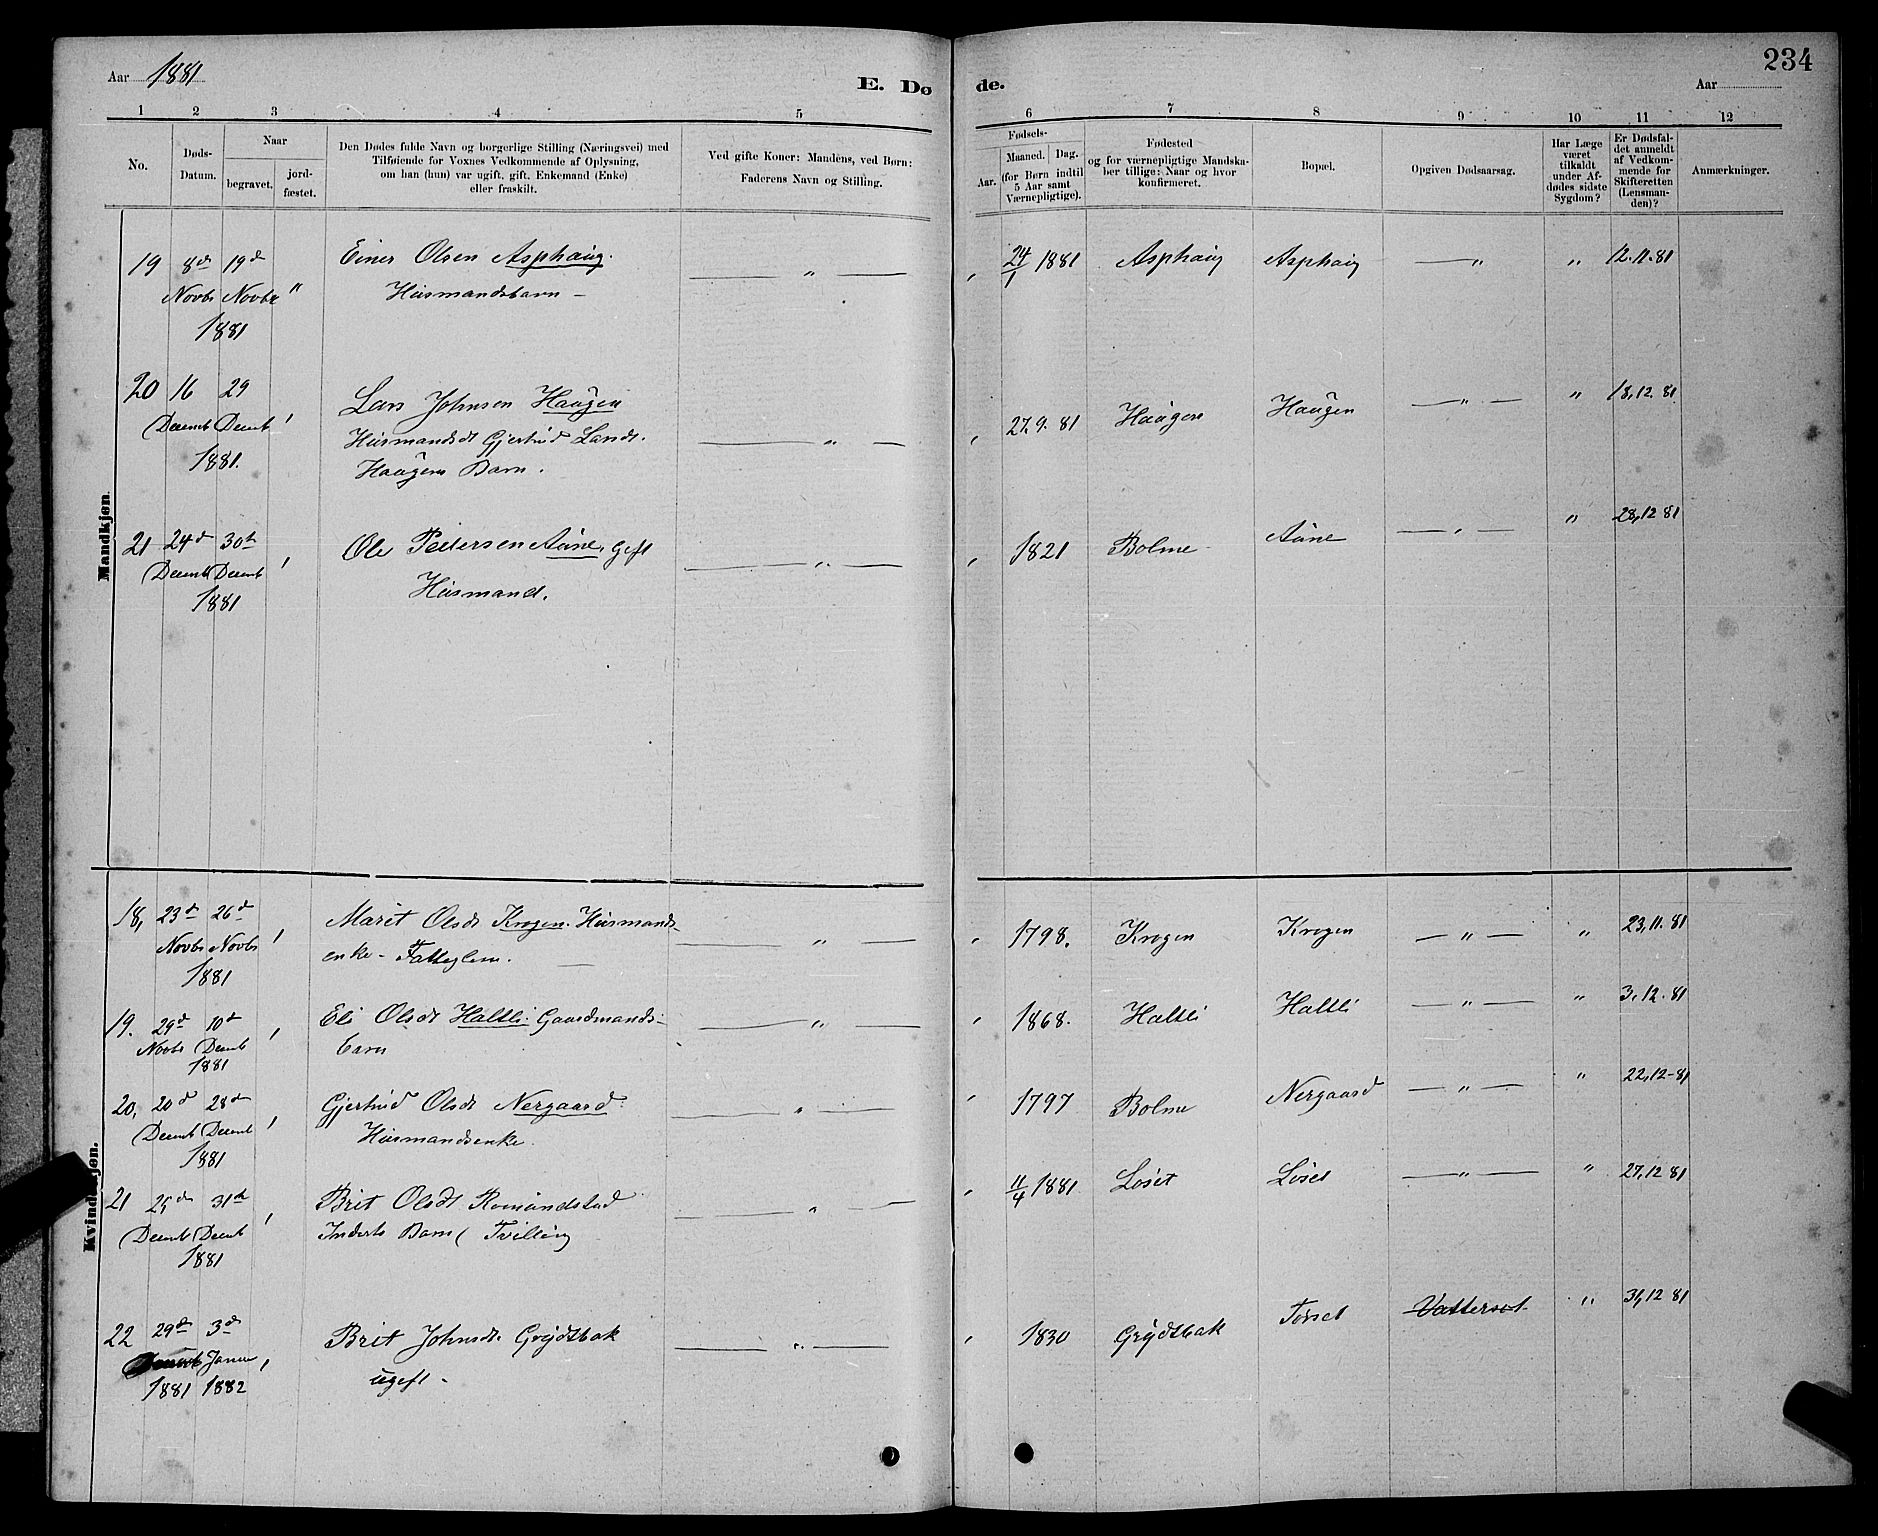 Aar 1881
E. Dø de.
Aar
234
1 2 3 4 5 6 7 8 9 10 11 12
No.
Døds-
Datum.
Naar
begravet.
jord-
fæstet.
Den Dødes fulde Navn og borgerlige Stilling (Næringsvei) med
Tilføiende for Voxnes Vedkommende af Oplysning,
om han (hun) var ugift, gift, Enkemand (Enke)
eller fraskilt.
Ved gifte Koner: Mandens, ved Børn:
Faderens Navn og Stilling.
Fødsels-
Aar.
Maaned. Dag.
(for Børn indtil
5 Aar samt
Værnepligtige).
Fødested
og for værnepligtige Mandska-
ber tillige: Naar og hvor
konfirmeret.
Bopæl.
Opgiven Dødsaarsag.
Har Læge
været
tilkaldt
under Af-
dødes sidste
Sygdom?
Er Dødsfal-
det anmeldt
af Vedkom-
mende for
Skifteretten
(Lensman-
den)?
Anmærkninger.
Mandkjøn.
19 8de 19de Einer Olsen Asphaug. — " — 24/1 1881 Asphaug Asphaug — " " 12.11.81
Novbr Novbr " Husmandsbarn –
1881
20 16 29 Lars Johnsen Haugen 27.9.81 Haugen Haugen — " — " 18,12.81
Decemb Decemb Husmandsdt Gjertrud Larsdt. — " —
1881. Haugens Barn.
21 24de 30te Ole Pedersen Aune, Gift — " — 1821 Bolme Aune — " — " 28,12 81
Decemb Decemb Husmand.
1881
Kvindekjøn.
18, 23de 26de Marit Olsdt Krogen. Husmands- — " — 1798. Krogen Krogen — " — " 23,11.81
Novbr Novbr enke –
1881
19. 29de 10de Eli Olsdt Haltli. Gaardmands- — " — 1868. Haltli Haltli — " — " 3,12.81
Novbr Decemb barn
1881
20, 20de 28de Gjertrud Olsdt Nergaard — " — 1797 Bolme Nergaard — " — " 22,12-81
Decemb Decemb Husmandsenke.
1881
21 25de 31te Brit Olsdt Romundstad — " — 11/4 1881 Løset Løset — " — " 27,12 81
Decemb Decemb Inderts Barn ( Tvilling
1881
22 29de 3de Brit Johnsdt. Grydtbak — " — 1830 Grydtbak Tørset " 31,12 81
Decemb Januar ugift –
1881 1882